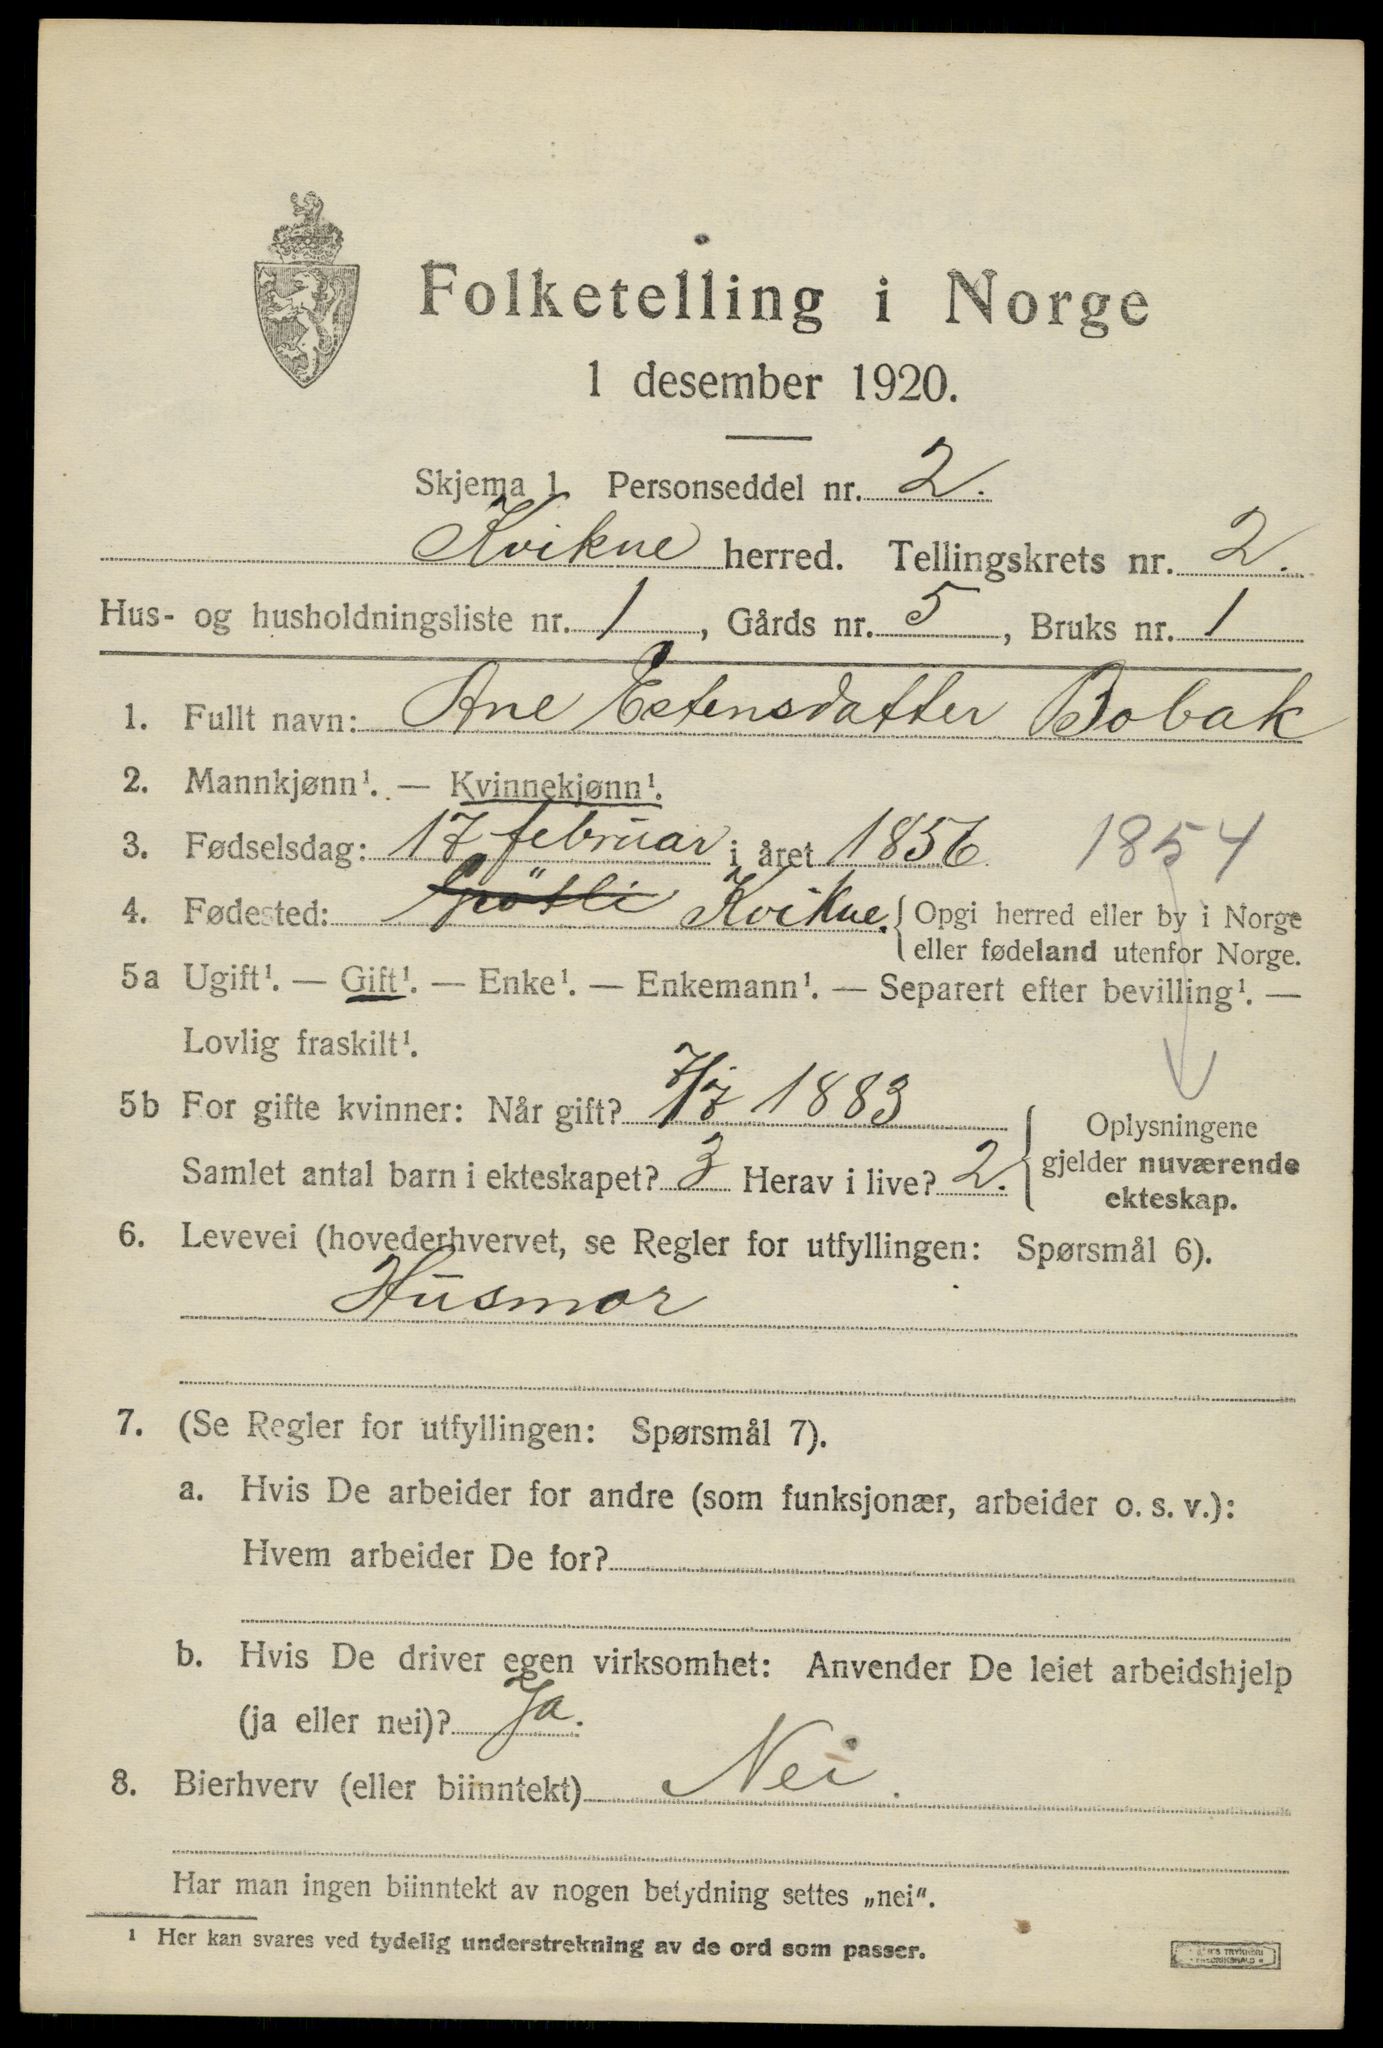 Folketelling i Norge
1 desember 1920.
Skjema 1 Personseddel nr. 2.
Kvikne herred. Tellingskrets nr. 2.
Hus- og husholdningsliste nr. 1, Gårds nr. 5, Bruks nr. 1
1. Fullt navn: Ane Estensdatter Bobak
2. Mannkjønn¹. — Kvinnekjønn¹.
3. Fødselsdag: 17 februar i året 1856 1854
4. Fødested: Kvikne. { Opgi herred eller by i Norge
eller fødeland utenfor Norge.
5a Ugift¹. — Gift¹. — Enke¹. — Enkemann¹. — Separert efter bevilling¹. —
Lovlig fraskilt¹.
5b For gifte kvinner: Når gift? 7/7 1883
Samlet antal barn i ekteskapet? 3 Herav i live? 2.
Oplysningene
gjelder nuværende
ekteskap.
6. Levevei (hovederhvervet, se Regler for utfyllingen: Spørsmål 6).
Husmor
7. (Se Regler for utfyllingen: Spørsmål 7).
a. Hvis De arbeider for andre (som funksjonær, arbeider o. s. v.):
Hvem arbeider De for?
b. Hvis De driver egen virksomhet: Anvender De leiet arbeidshjelp
(ja eller nei)? Ja.
8. Bierhverv (eller biinntekt) Nei.
Har man ingen biinntekt av nogen betydning settes „nei".
¹ Her kan svares ved tydelig understrekning av de ord som passer.
TRYKKERI
FREDRIKSHALD